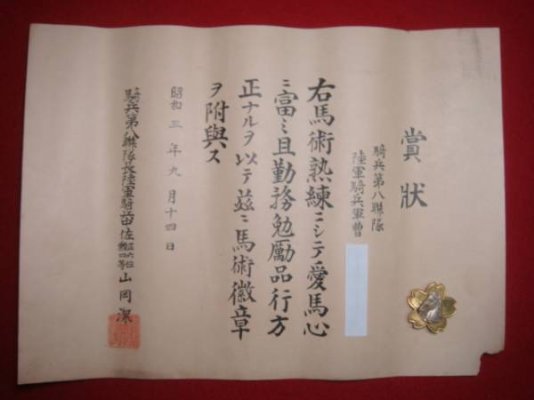 賞狀
騎兵第八聯隊
陸軍騎兵軍曹
右馬術熟練ニシテ愛馬心
ニ富ミ且勤務勉勵品行方
正ナルヲ以テ茲ニ馬術徽章
ヲ附與ス
昭和三年九月十四日
騎兵第八聯隊長陸軍騎兵中佐 山岡潔